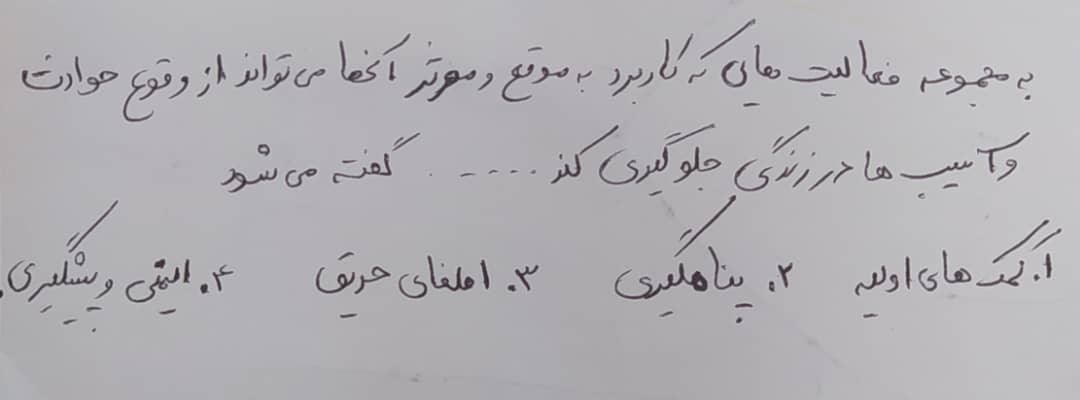 به مجموعه فعالیت هایی که کاربرد به موقع و موثر آنها می تواند از وقوع حوادث
و آسیب ها در زندگی جلوگیری کند ..... گفته می شود
۱. کمک های اولیه ۲. پناهگیری ۳. اطفای حریق ۴. ایمنی و پیشگیری.